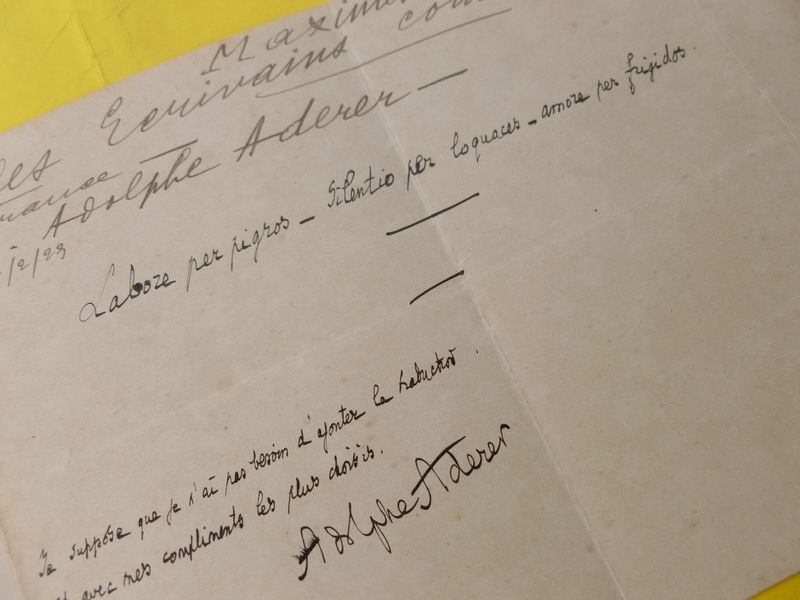 Maximes
des Ecrivains
France
Adolphe Aderer —
/2/23
Labore per pigros — Silentio per loquaces — amore per frigidos.
Je suppose que je n'ai pas besoin d'ajouter la traduction.
avec mes compliments les plus choisis.
Adolphe Aderer